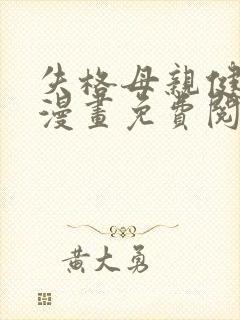 失格母親健
漫畫免費閱
黃大勇